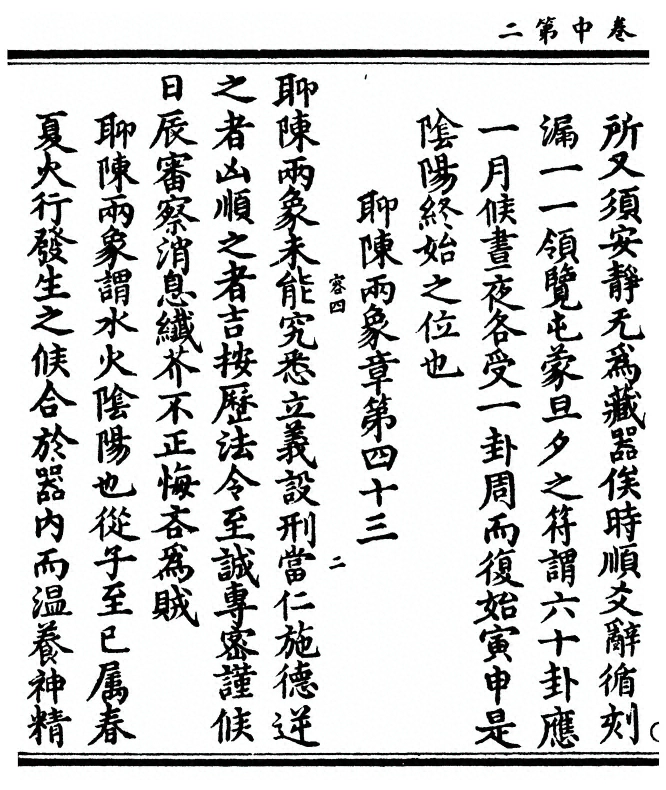 卷中第二
所又須安靜无爲藏器俟時順爻辭循刻
漏一一領覽屯蒙旦夕之符謂六十卦應
一月候晝夜各受一卦周而復始寅申是
陰陽終始之位也
聊陳兩象章第四十三
容四
二
聊陳兩象未能究悉立義設刑當仁施德逆
之者凶順之者吉按歷法令至誠專密謹候
日辰審察消息纖芥不正悔吝爲賊
聊陳兩象謂水火陰陽也從子至巳属春
夏火行發生之候合於器內而温養神精